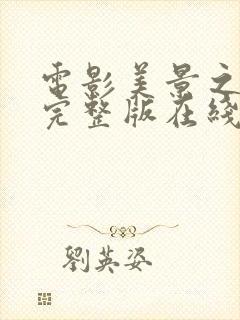 電影美景之
完整版在綫
劉英姿